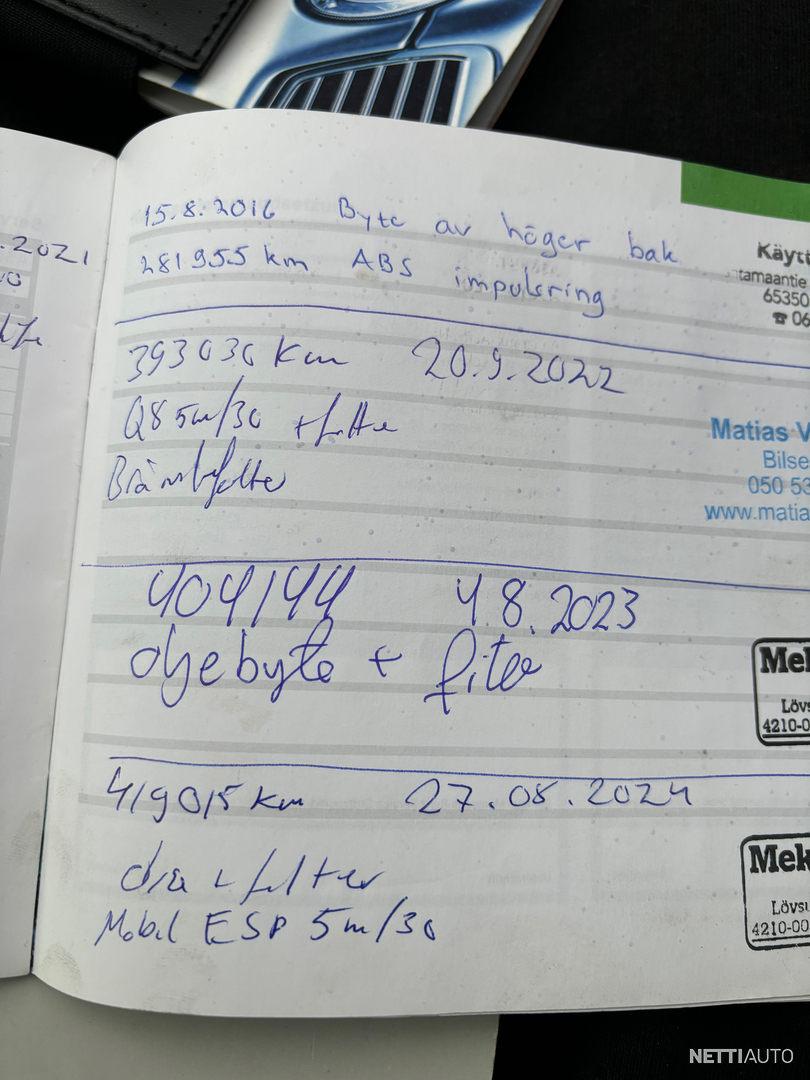 . 2021
15.8.2016 Byte av höger bak
281955 km ABS impulsring
Käyttö
tamaantie
65350
☎ 06
393030 km 20.9.2022
Q8 5w/30 + filter
Bränslefilter
Matias V
Bilse
050 53
www.matia
404144 4.8.2023
oljebyte + filter
Mek
Lövs
4210-0
419015 km 27.08.2024
olja + filter
Mobil ESP 5w/30
Mek
Lövsu
4210-00
NETTIAUTO